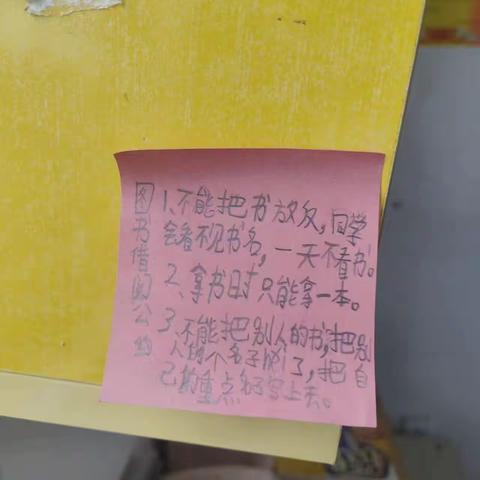 图书借阅公约
1、不能把书放反,同学
会看不见书名,一天不看书。
2、拿书时只能拿一本。
3、不能把别人的书,把别
人的个名子了,把自
己的重点名子写上去。